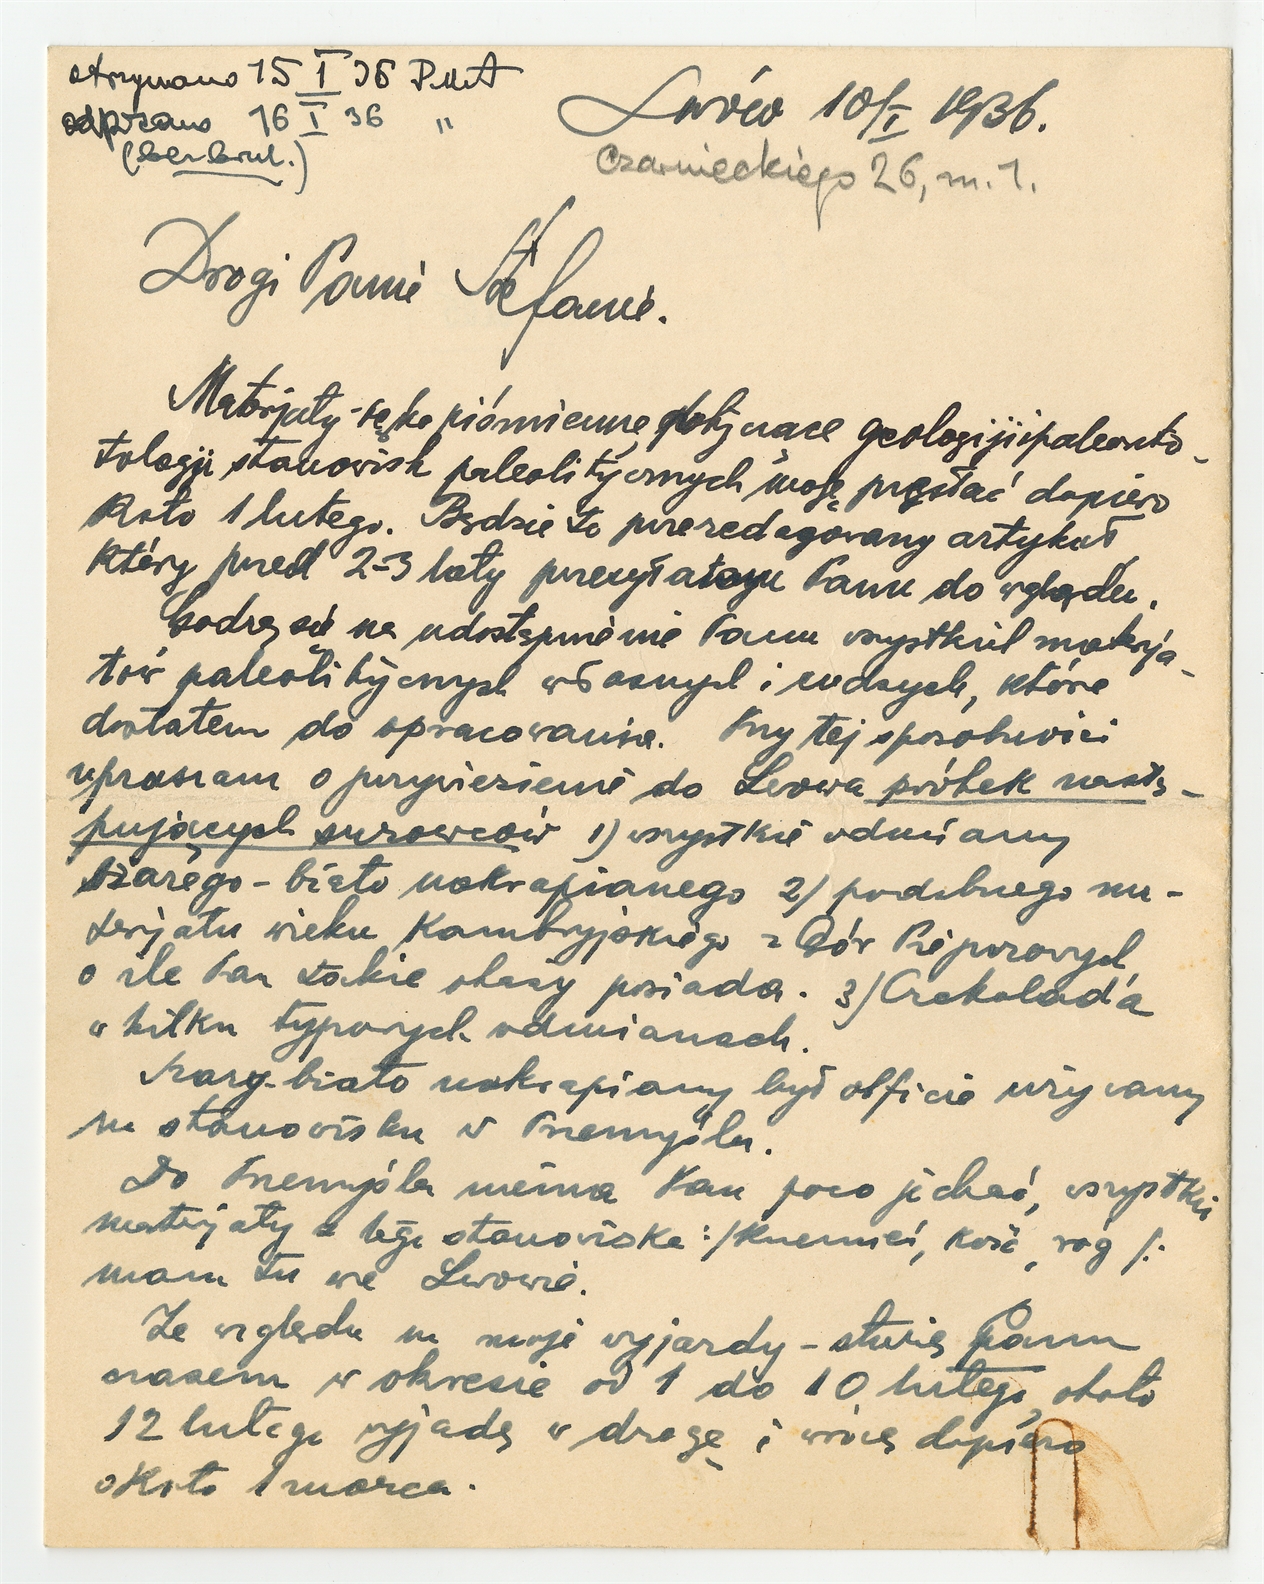 otrzymano 15 I 36 PMA
odpisano 16 I 36 "
(bez brul.)
Lwów 10/I 1936.
Czarnieckiego 26, m. 1.
Drogi Panie Stefanie.
Materjały rękopiśmienne dotyczące geologji i paleonto-
tologji stanowisk paleolitycznych mogę przesłać dopiero
koło 1 lutego. Będzie to przeredagowany artykuł
który przed 2-3 laty przesyłałem Panu do wglądu.
Godzę się na udostępnienie Panu wszystkich materja-
łów paleolitycznych własnych i cudzych, które
dostałem do opracowania. Przy tej sposobności
upraszam o przywiezienie do Lwowa próbek nastę-
pujących surowców 1) wszystkie odmiany
szarego-biało nakrapianego 2) podobnego ma-
terjału wieku kambryjskiego z Gór Pieprzowych
o ile Pan takie okazy posiada. 3) Czekolada
w kilku typowych odmianach.
Szary-biało nakrapiany był obficie używany
na stanowisku w Przemyślu.
Do Przemyśla niéma Pan poco jechać, wszystkie
materjały z tego stanowiska :/Krzemień, kość, róg /:
mam tu we Lwowie.
Ze względu na moje wyjazdy - służę Panu
czasem w okresie od 1 do 10 lutego, około
12 lutego wyjadę w drogę i wrócę dopiero
około 1 marca.